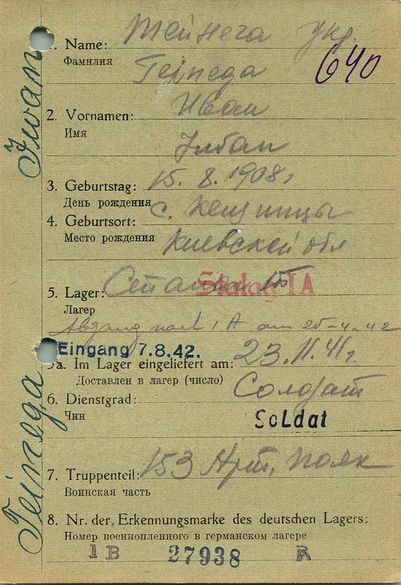 Тейнега Укр.
1. Name:
Фамилия
Teinega
640
Иван
2. Vornamen:
Имя
Iwan
3. Geburtstag: 15. 8. 1908 г
День рождения
4. Geburtsort: с.
Место рождения Киевской обл
5. Lager: Stalag IA
Лагер
Abgang nach IA am 25-4-42
Eingang 7.8.42.
5a. Im Lager eingeliefert am: 23.11.41г.
Доставлен в лагер (число)
6. Dienstgrad: Солдат
Чин
Soldat
7. Truppenteil: 153 Арт. полк
Воинская часть
8. Nr. der Erkennungsmarke des deutschen Lagers:
Номер военнопленного в германском лагере
IB 27938 R
Iwan
Teinega